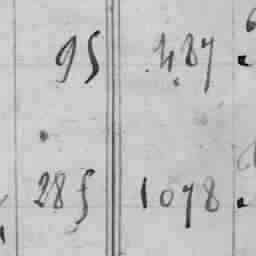 95 487
285 1078